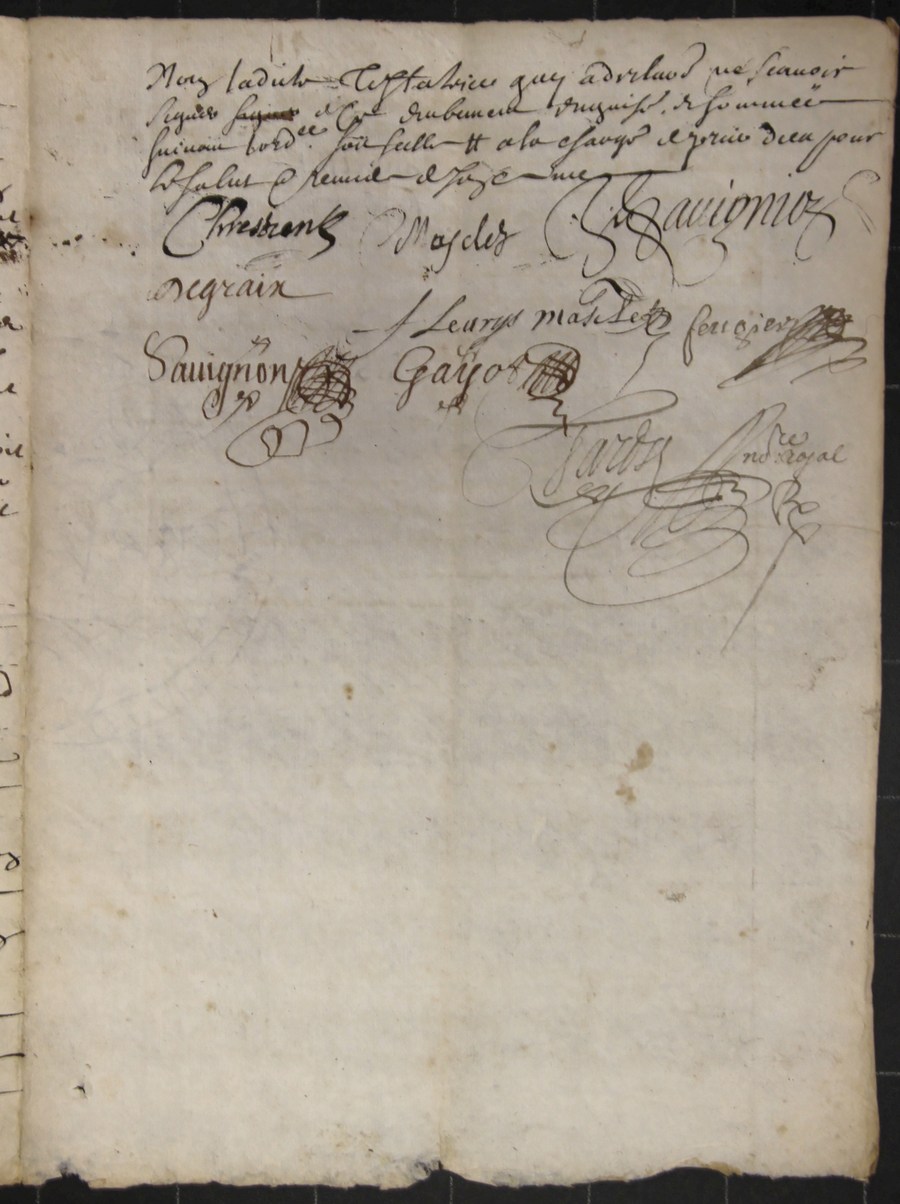 Non ladicte Testatrice quy a declaré ne scavoir
signer de ce deubement enquise & sommée
suivant lordce. # a la charge de prier dieu pour
le salut & remede de son ame
Chrestien
Masclez
Savignioz
Degrain
fleurys masclez
ferogier
Savignon
Gayot
Tardy
nore Royal